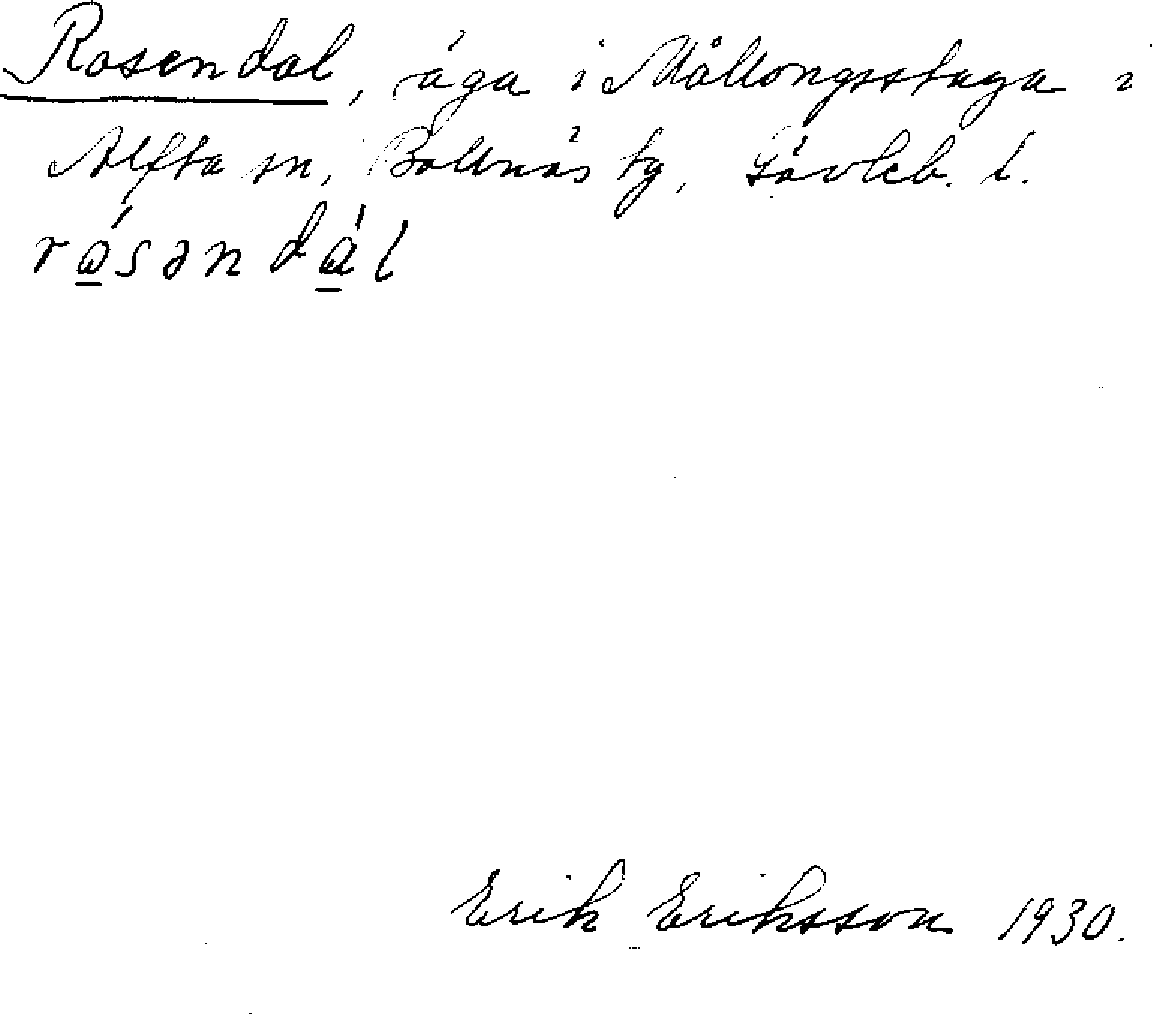 Rosendal, äga i Mållongsstuga i
Alfta sn, Bollnäs tg, Gävleb. l.
rósəndál
Erik Eriksson 1930.